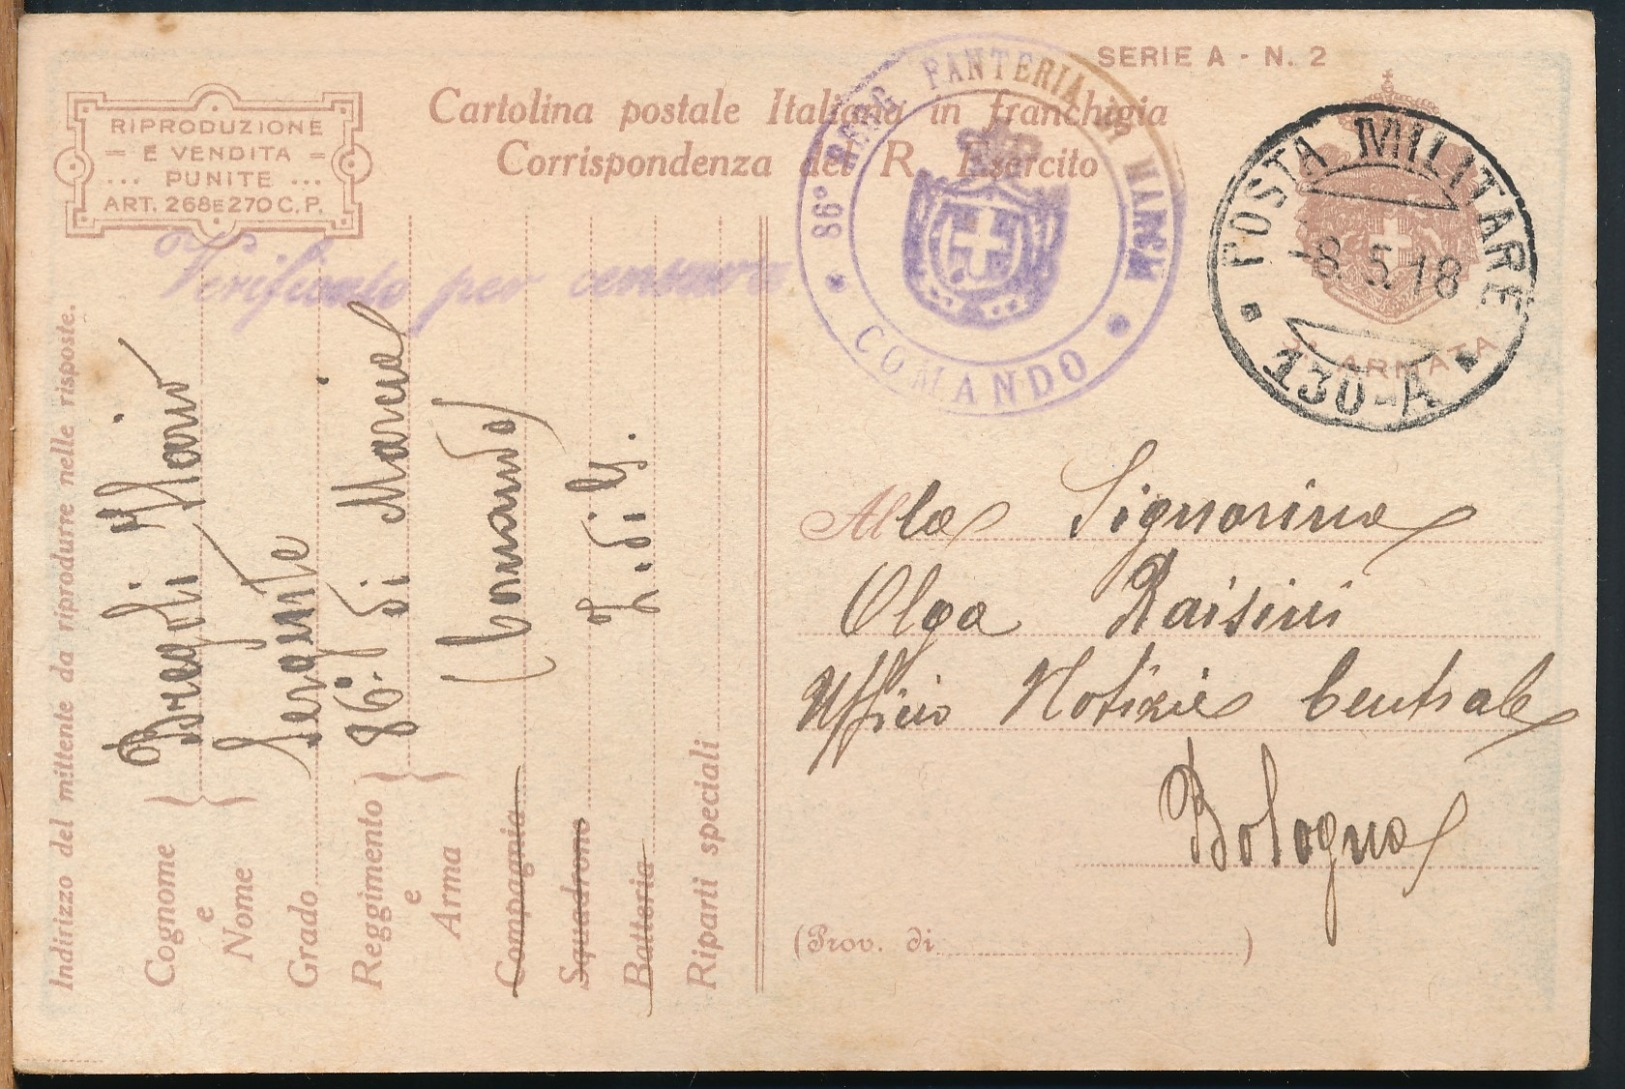 SERIE A - N. 2
RIPRODUZIONE
E VENDITA
... PUNITE ...
ART. 268 E 270 C.P.
Cartolina postale Italiana in franchigia
Corrispondenza del R. Esercito
86° REGG FANTERIA DI MARCIA
COMANDO
POSTA MILITARE
-8.5.18
130-A
3ª ARMATA
Verificato per censura
Indirizzo del mittente da riprodurre nelle risposte.
Cognome e Nome
Grado
Sergente
Reggimento e Arma
86° di Marcia
(Comando)
Compagnia
Squadrone
Batteria
Z. di G.
Riparti speciali
Alla Signorina
Olga Raisini
Ufficio Notizie Centrale
Bologna
(Prov. di )